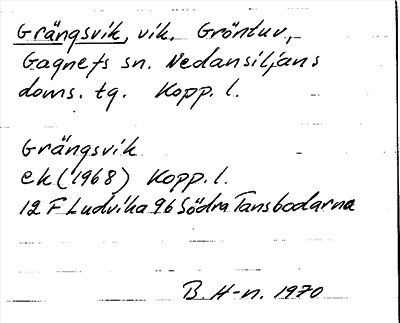 Grängsvik, vik. Gröntuv,
Gagnefs sn. Nedansiljans
doms. tg. Kopp. l.
Grängsvik
ek (1968) Kopp. l.
12 F Ludvika 9b Södra Tansbodarna
B. H-n. 1970